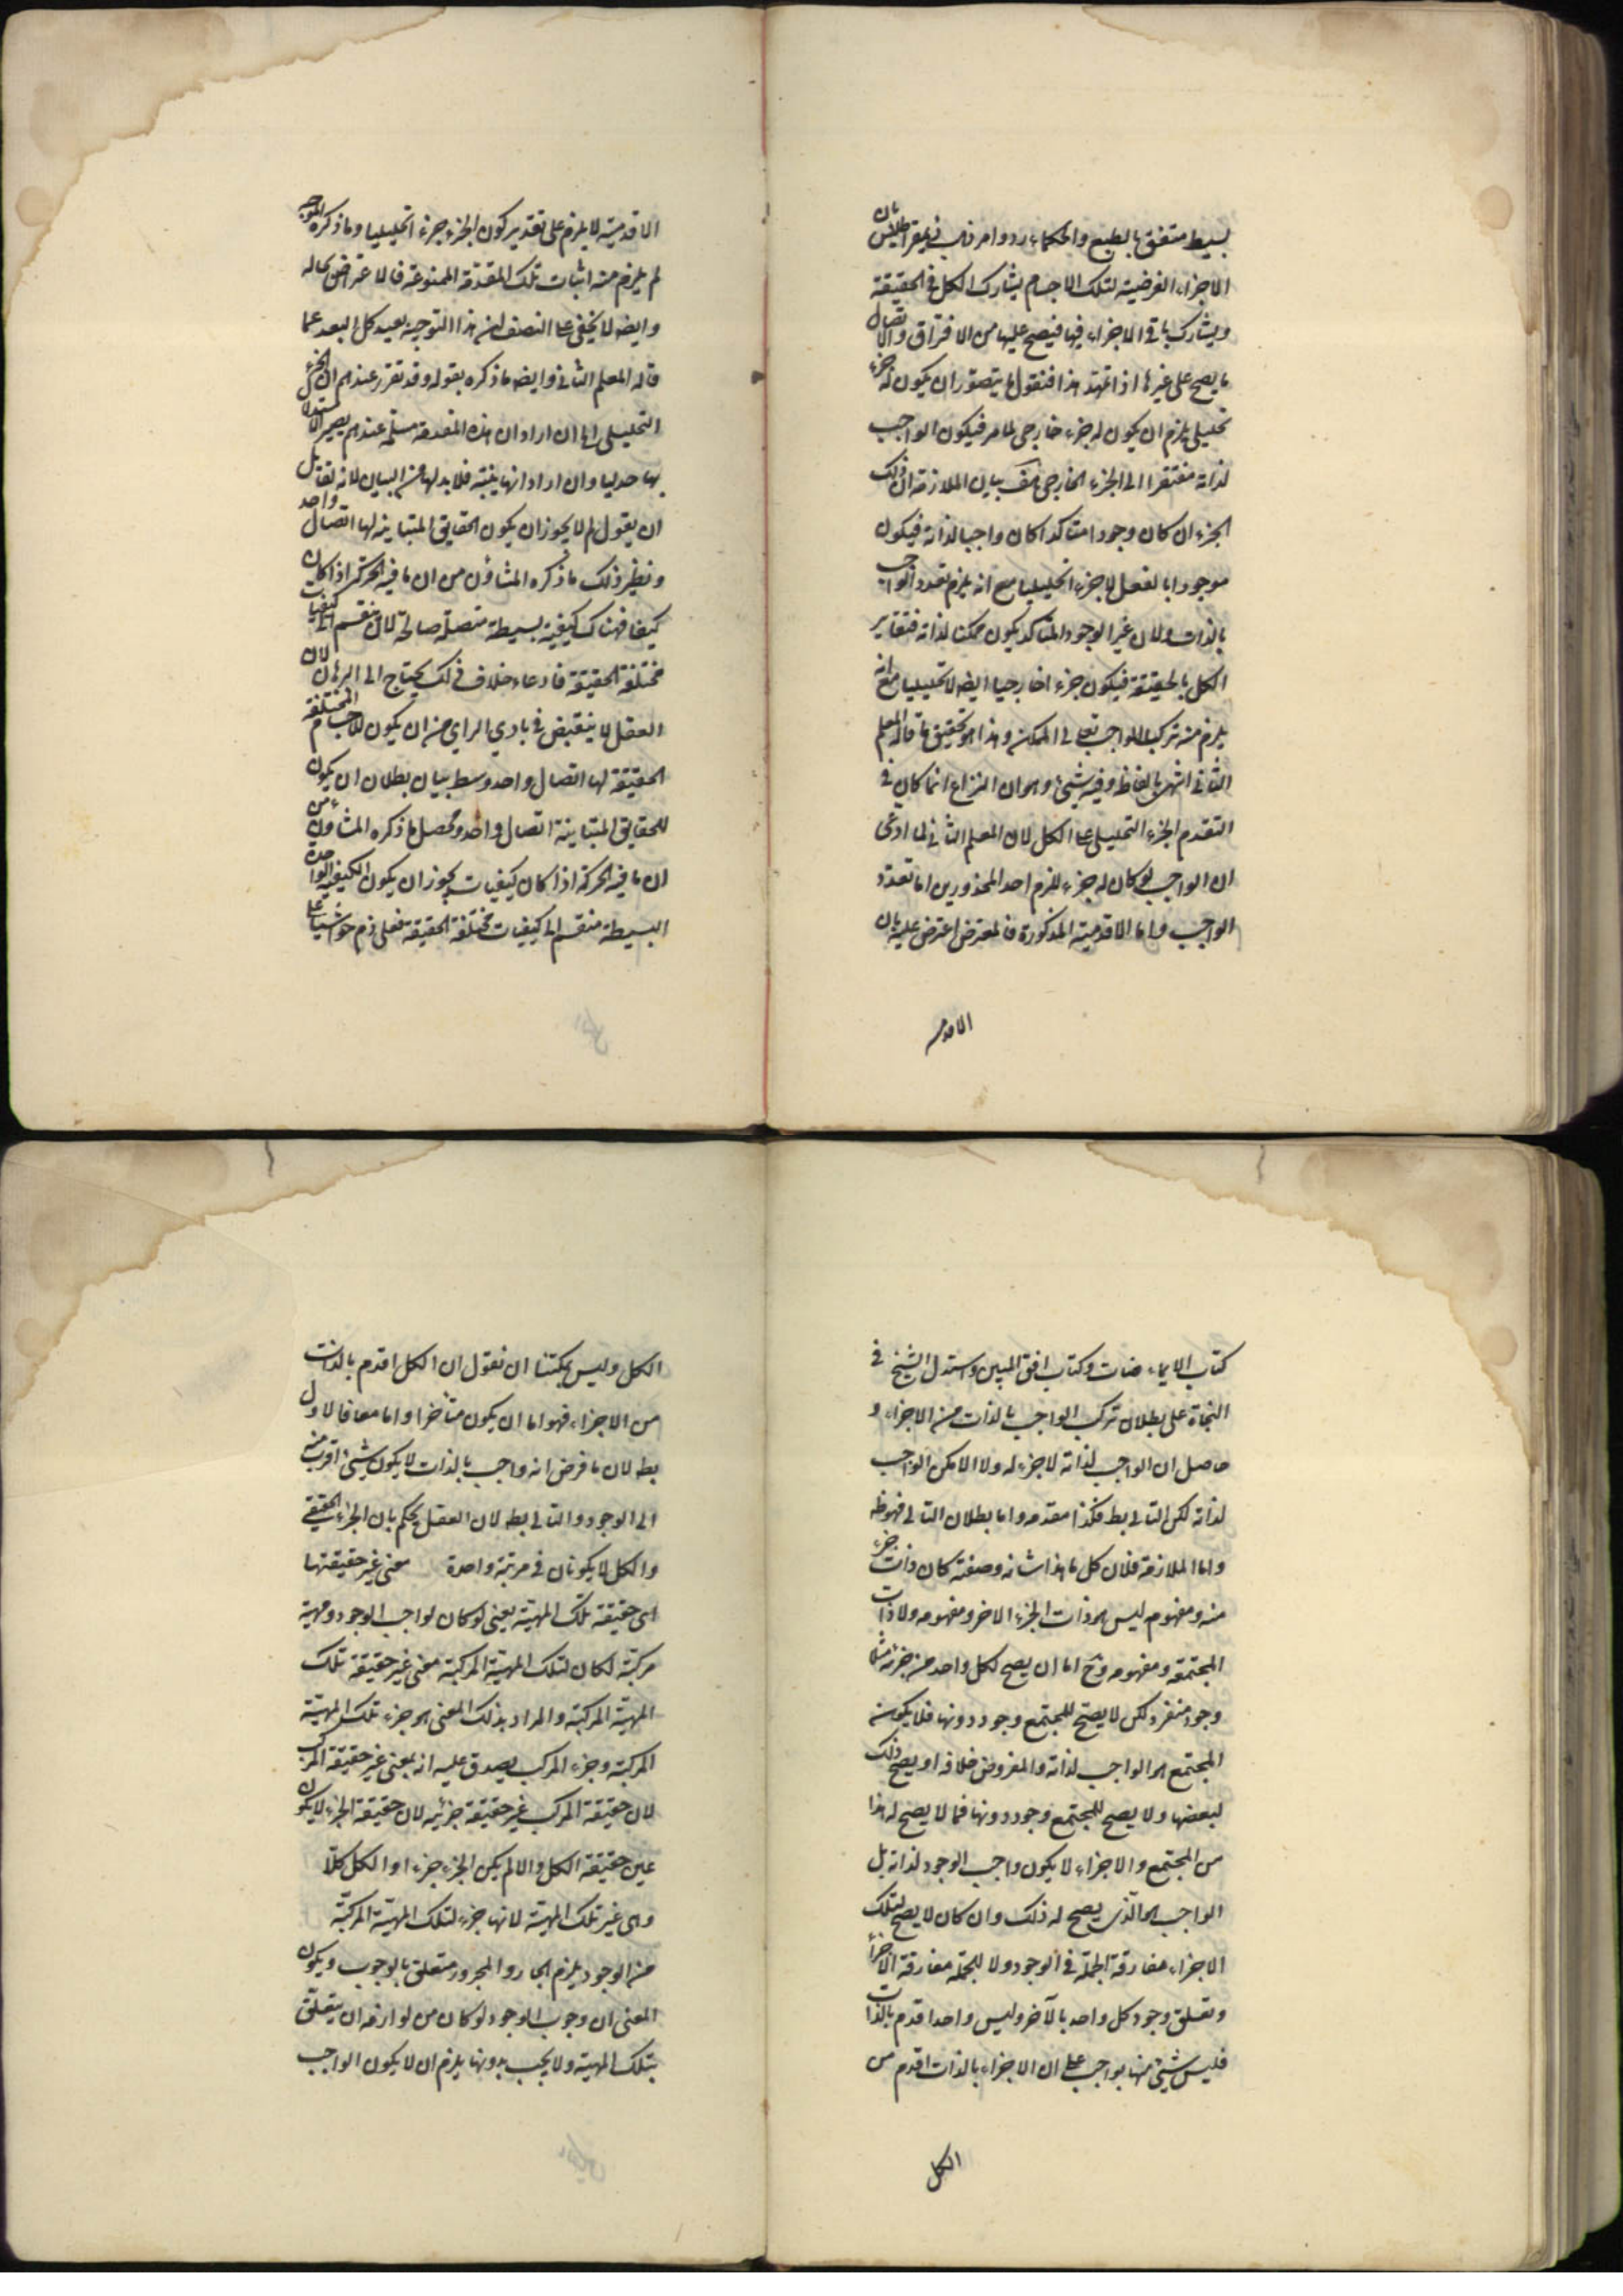 بسيط متفق بالطبع والحكماء ردوا مذهب ذيمقراطيس بان
الاجزاء الفرضية لتلك الاجسام يشارك الكل في الحقيقة
ويشارك باقي الاجزاء فيها فيصح عليها من الافتراق والاتصال
ما يصح على غيرها اذا تمهد هذا فنقول ما يتصور ان يكون له جزء
تحليلي يلزم ان يكون له جزء خارجي لما مر فيكون الواجب
لذاته مفتقرا الى الجزء الخارجي هف بيان الملازمة ان ذلك
الجزء ان كان وجودا متأكدا كان واجبا لذاته فيكون
موجودا بالفعل لا جزء تحليليا مع انه يلزم تعدد الواجب
بالذات ولان غير الوجود المتأكد يكون ممكنا لذاته فتغاير
الكل بالحقيقة فيكون جزء خارجيا ايضا لا تحليليا مع انه
يلزم منه تركب الواجب تعالى من الممكن وهذا هو تحقيق ما قاله المعلم
الثاني اشهر بالفاظ وفيه شيئ وهو ان النزاع انما كان في
التقدم الجزء التحليلي على الكل لان المعلم الثاني لما ادعى
ان الواجب لو كان له جزء للزم احد المحذورين اما تعدد
الواجب واما الاقدمية المذكورة فالمعترض اعترض عليه بان
الاقدمية
الاقدمية لا يلزم على تقدير كون الجزء جزء تحليليا وما ذكره الموجه
لم يلزم منه اثبات تلك المقدمة الممنوعة فالاعتراض بحاله
وايضا لا يخفى على المنصف ان هذا التوجيه بعيد كل البعد عما
قاله المعلم الثاني وايضا ما ذكره بقوله وقد تقرر عندهم ان الجزء
التحليلي الخ ان اراد ان هذه المقدمة مسلمة عندهم يصير الاستدلال
بها جدليا وان اراد انها بينة فلا بد لها من البيان لانه لقائل
ان يقول لم لا يجوز ان يكون الحقايق المتباينة لها اتصال واحد
ونظير ذلك ما ذكره المشاؤن من ان ما فيه الحركة اذا كان
كيفا فهناك كيفية بسيطة متصلة صالحة لان ينقسم الى كيفيات
مختلفة الحقيقة فادعاء خلاف ذلك يحتاج الى البرهان لان
العقل لا ينقبض في بادي الراي من ان يكون للاجسام المختلفة
الحقيقة لها اتصال واحد وسط بيان بطلان ان يكون
للحقايق المتباينة اتصال واحد ومحصل ما ذكره المشاؤن من
ان ما فيه الحركة اذا كان كيفيات يجوز ان يكون الكيفية الواحدة
البسيطة منقسم الى كيفيات مختلفة الحقيقة فعلى ذم حواشينا على
كتاب الايماضات وكتاب افق المبين واستدل الشيخ في
النجاة على بطلان تركب الواجب بالذات من الاجزاء و
حاصل ان الواجب لذاته لا جزء له ولا الا لا يكن الواجب
لذاته لكن التالي بط فكذا مقدمه واما بطلان التالي فهو ظ
واما الملازمة فلان كل ما هذا شانه وصفته كان ذات جزء
منه ومفهومه ليس هو ذات الجزء الاخر ومفهومه ولا ذات
المجتمعة ومفهومه وح اما ان يصح لكل واحد من جزئه مثلا
وجود منفرد لكن لا يصح للمجتمع وجود دونها فلا يكون
المجتمع هو الواجب لذاته والمفروض خلافه او يصح ذلك
لبعضها ولا يصح للمجتمع وجود دونها فما لا يصح له هذا
من المجتمع والاجزاء لا يكون واجب الوجود لذاته بل
الواجب هو الذي يصح له ذلك وان كان لا يصح لتلك
الاجزاء مفارقة الجملة في الوجود ولا للجملة مفارقة الاجزاء
وتعلق وجود كل واحد بالآخر وليس واحد اقدم بالذات
فليس شيئ منها بواجب على ان الاجزاء بالذات اقدم من
الكل
الكل وليس يمكننا ان نقول ان الكل اقدم بالذات
من الاجزاء فهو اما ان يكون متأخرا واما معا فالاول
بط لان ما فرض انه واجب بالذات لا يكون شيئ اقرب منه
الى الوجود والتالي بط لان العقل يحكم بان الجزء الحقيقي
والكل لا يكونان في مرتبة واحدة معنى غير حقيقتها
اى حقيقة تلك المهية يعنى لو كان لواجب الوجود مهية
مركبة لكان لتلك المهية المركبة معنى غير حقيقة تلك
المهية المركبة والمراد بذلك المعنى هو جزء تلك المهية
المركبة وجزء المركب يصدق عليه انه بمعنى غير حقيقة المركب
لان حقيقة المركب غير حقيقة جزئيه لان حقيقة الجزء لا يكون
عين حقيقة الكل والا لم يكن الجزء جزء او الكل كلا
وهى غير تلك المهية لانها جزء لتلك المهية المركبة
من الوجود يلزم الجار والمجرور متعلق بالوجوب ويكون
المعنى ان وجوب الوجود لو كان من لوازمه ان يتعلق
بتلك المهية ولا يجب بدونها يلزم ان لا يكون الواجب